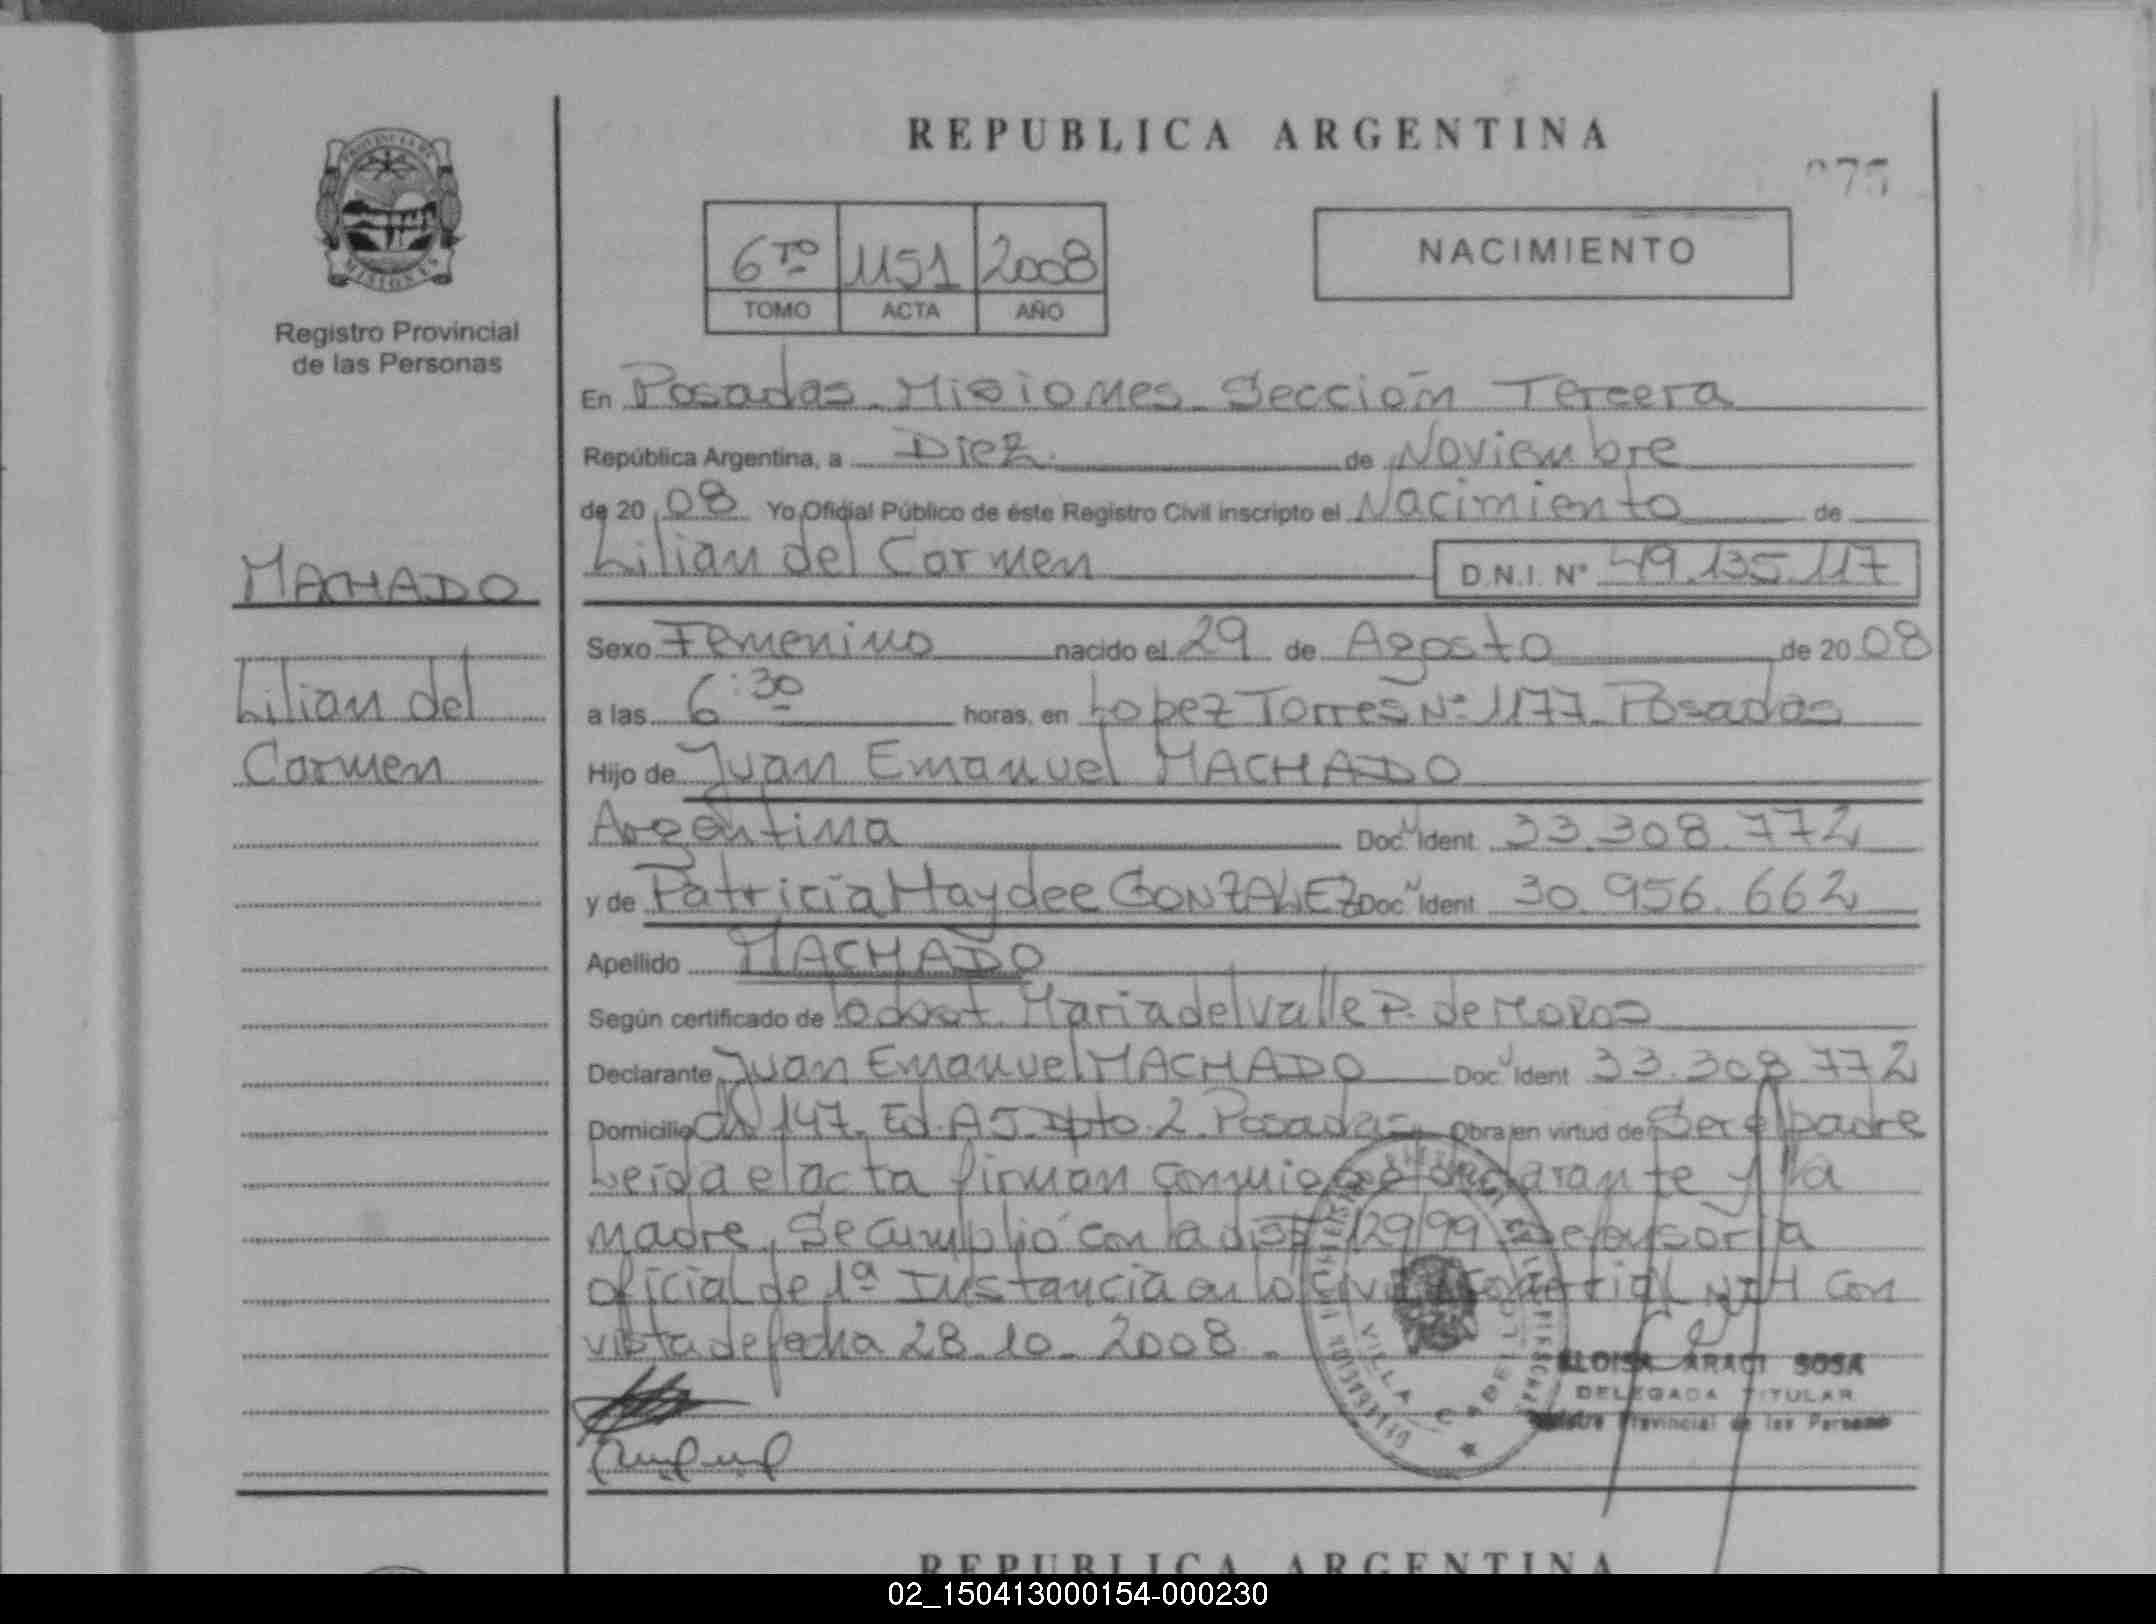 REPUBLICA ARGENTINA
075
PROVINCIA DE
MISIONES
Registro Provincial
de las Personas
6TO 1151 2008
TOMO ACTA AÑO
NACIMIENTO
En Posadas. Misiones. Sección Tercera
República Argentina, a Diez. de Noviembre
de 20 08 Yo Oficial Público de éste Registro Civil inscripto el Nacimiento de
Lilian del Carmen D.N.I. Nº 49.135.117
MACHADO
Lilian del
Carmen
Sexo Femenino nacido el 29 de Agosto de 20 08
a las 6:30 horas, en Lopez Torres Nº 1177. Posadas
Hijo de Juan Emanuel MACHADO
Argentina Doc. Ident. 33.308.772
y de Patricia Haydee GONZALEZ Doc. Ident. 30.956.662
Apellido MACHADO
Según certificado de Maria del Valle P. de
Declarante Juan Emanuel MACHADO Doc. Ident. 33.308.772
Domicilio 147. Ed. A5. Dpto. 2. Posadas Obra en virtud de Ser el padre
Leída el acta firman conmigo el declarante y la
madre, Se cumplió con la disp. 129/99 Defensoría
oficial de 1ª Instancia en lo Civil y Comercial Nº 4 con
vista de fecha 28.10.2008.
VILLA CABELLO
ELOISA ARACI SOSA
DELEGADA TITULAR
Registro Provincial de las Personas
REPUBLICA ARGENTINA
02_150413000154-000230